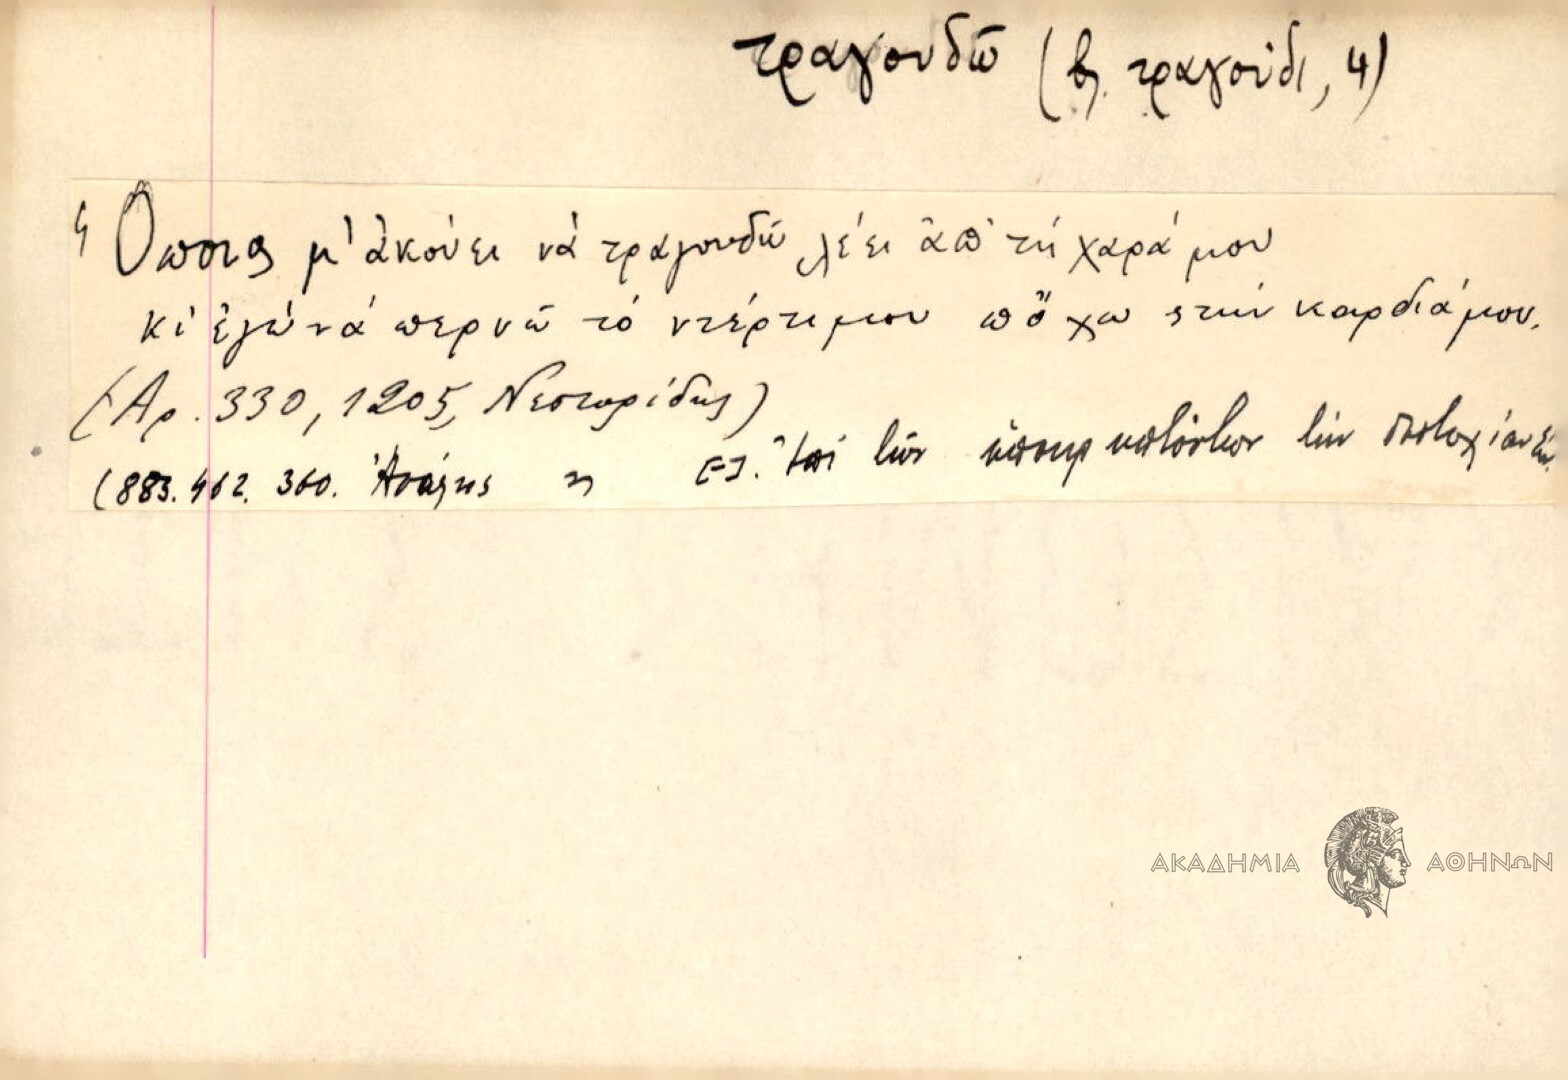 τραγουδῶ (βλ. τραγούδι, 4)
Ὅποιος μ' ἀκούει νά τραγουδῶ λέει ἀπ' τή χαρά μου
κι' ἐγώ νά περνῶ τό ντέρτι μου πὄχω στήν καρδιά μου.
(Ἀρ. 330, 1205, Νεστορίδης)
(883. 462. 360. Ἐπί τῶν τήν
ΑΚΑΔΗΜΙΑ ΑΘΗΝΩΝ